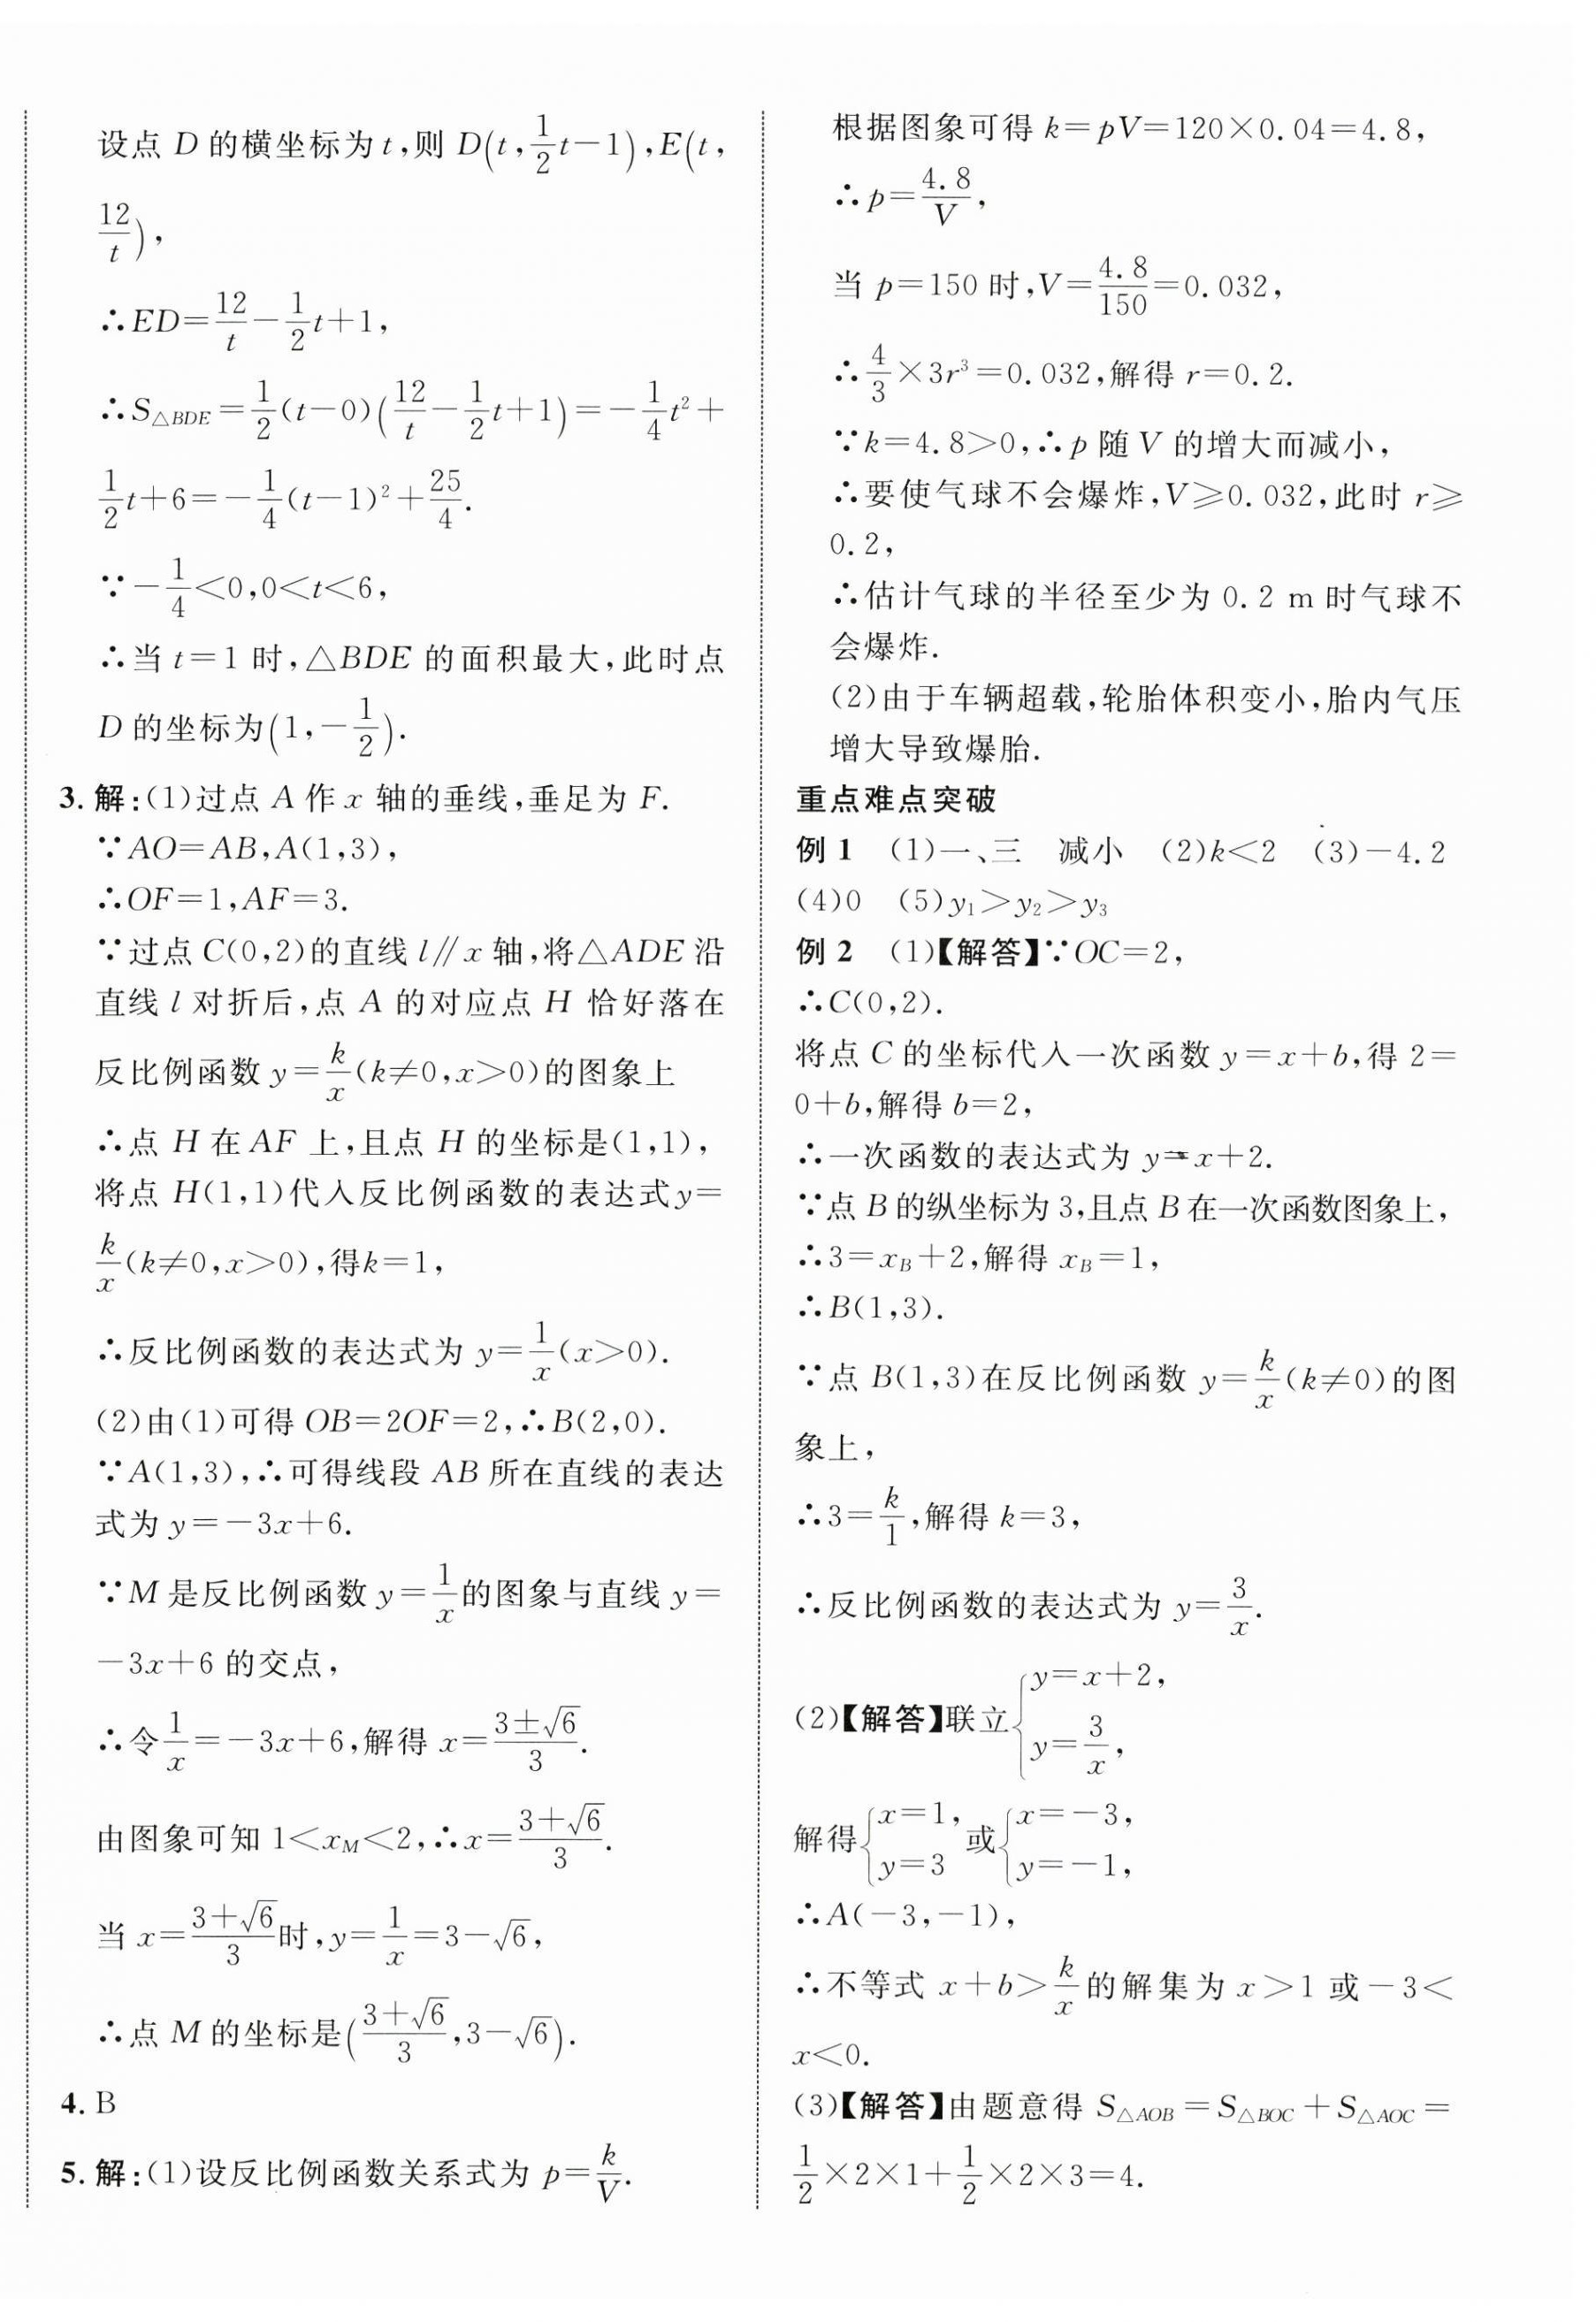 设点 D 的横坐标为 t,则 D(t,1/2t-1),E(t,
12/t),
∴ED=12/t-1/2t+1,
∴S△BDE=1/2(t-0)(12/t-1/2t+1)=-1/4t²+
1/2t+6=-1/4(t-1)²+25/4.
∵-1/4<0,0<t<6,
∴当 t=1 时,△BDE 的面积最大,此时点
D 的坐标为(1,-1/2).
3. 解:(1)过点 A 作 x 轴的垂线,垂足为 F.
∵AO=AB,A(1,3),
∴OF=1,AF=3.
∵过点 C(0,2)的直线 l∥x 轴,将△ADE 沿
直线 l 对折后,点 A 的对应点 H 恰好落在
反比例函数 y=k/x(k≠0,x>0)的图象上
∴点 H 在 AF 上,且点 H 的坐标是(1,1),
将点 H(1,1)代入反比例函数的表达式y=
k/x(k≠0,x>0),得k=1,
∴反比例函数的表达式为 y=1/x(x>0).
(2)由(1)可得 OB=2OF=2,∴B(2,0).
∵A(1,3),∴可得线段 AB 所在直线的表达
式为 y=-3x+6.
∵M 是反比例函数 y=1/x的图象与直线 y=
-3x+6 的交点,
∴令1/x=-3x+6,解得 x=(3±√6)/3.
由图象可知 1<x_M<2,∴x=(3+√6)/3.
当 x=(3+√6)/3时,y=1/x=3-√6,
∴点 M 的坐标是((3+√6)/3,3-√6).
4. B
5. 解:(1)设反比例函数关系式为 p=k/V.
根据图象可得 k=pV=120×0.04=4.8,
∴p=4.8/V,
当 p=150 时,V=4.8/150=0.032,
∴4/3×3r³=0.032,解得 r=0.2.
∵k=4.8>0,∴p 随 V 的增大而减小,
∴要使气球不会爆炸,V≥0.032,此时 r≥
0.2,
∴估计气球的半径至少为 0.2 m 时气球不
会爆炸.
(2)由于车辆超载,轮胎体积变小,胎内气压
增大导致爆胎.
重点难点突破
例 1 (1)一、三 减小 (2)k<2 (3)-4.2
(4)0 (5)y₁>y₂>y₃
例 2 (1)【解答】∵OC=2,
∴C(0,2).
将点 C 的坐标代入一次函数 y=x+b,得 2=
0+b,解得 b=2,
∴一次函数的表达式为 y=x+2.
∵点 B 的纵坐标为 3,且点 B 在一次函数图象上,
∴3=x_B+2,解得 x_B=1,
∴B(1,3).
∵点 B(1,3)在反比例函数 y=k/x(k≠0)的图
象上,
∴3=k/1,解得 k=3,
∴反比例函数的表达式为 y=3/x.
(2)【解答】联立{y=x+2, y=3/x,
解得{x=1, y=3 或{x=-3, y=-1,
∴A(-3,-1),
∴不等式 x+b>k/x的解集为 x>1 或-3<
x<0.
(3)【解答】由题意得 S△AOB=S△BOC+S△AOC=
1/2×2×1+1/2×2×3=4.